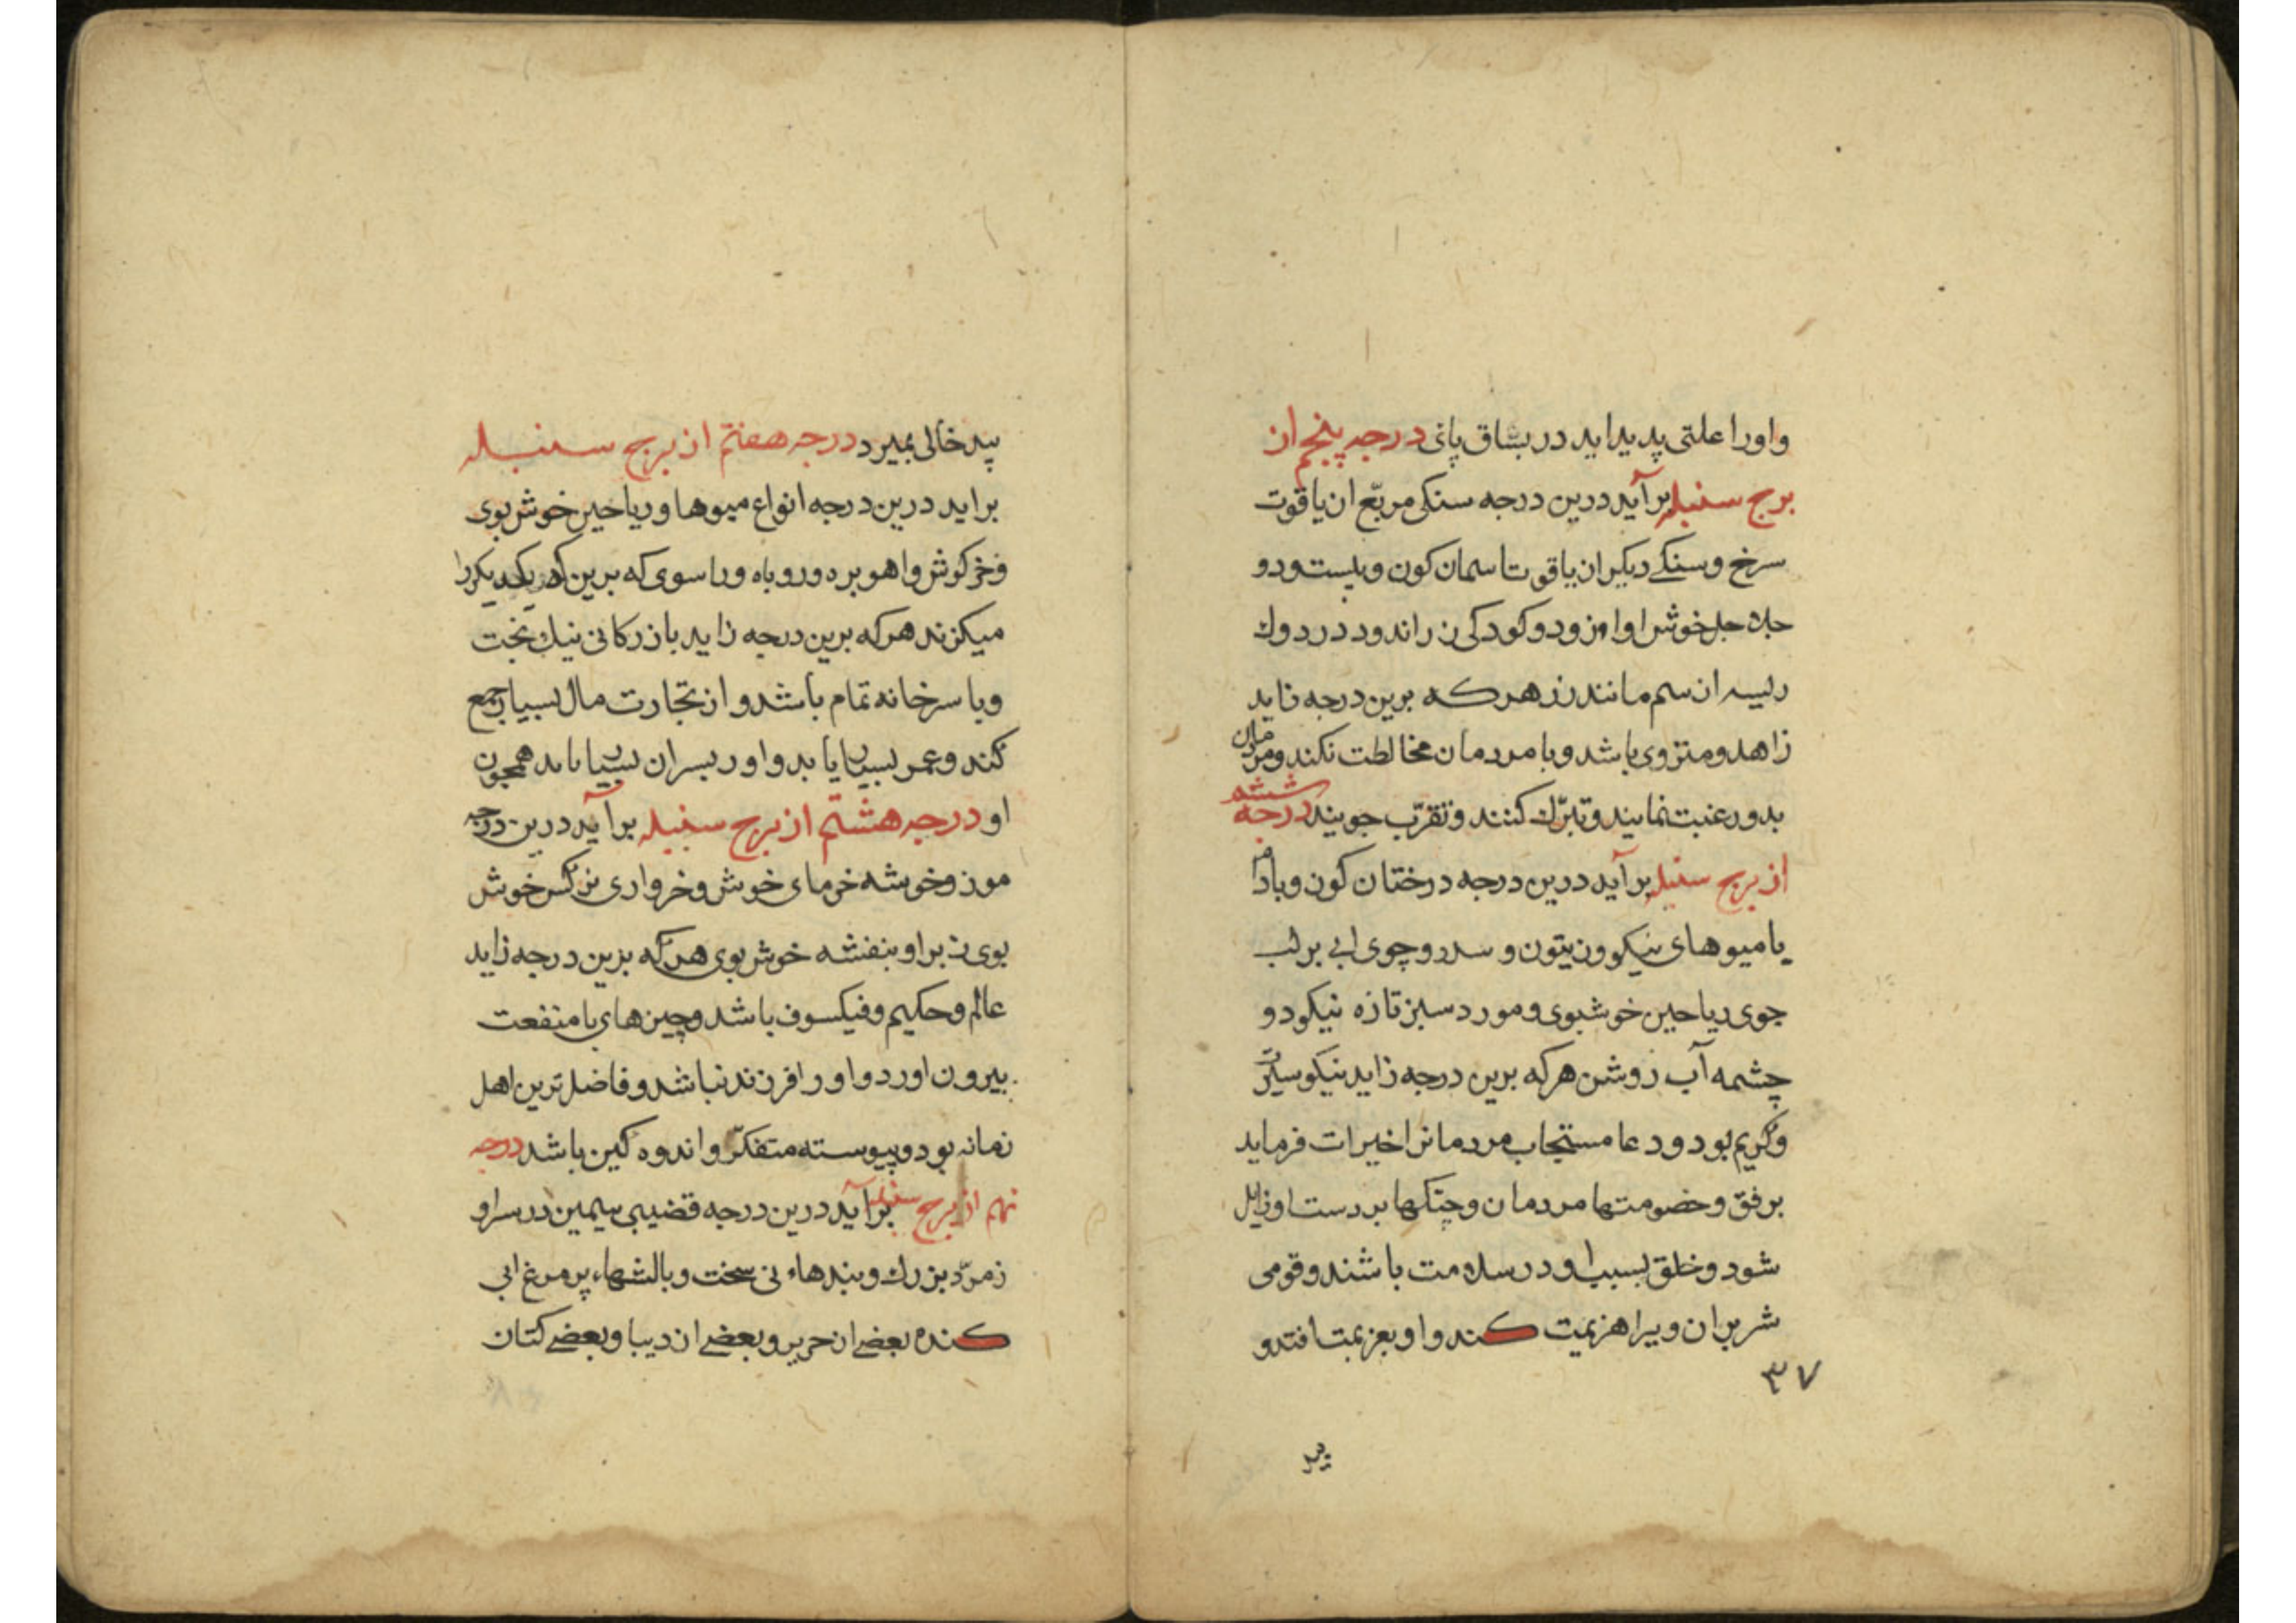 واورا علتی پدید اید در بساق پائی درجه پنجم از
برج سنبله برآید درین درجه سنکی مربّع از یاقوت
سرخ و سنکے دیکر از یاقوت اسمان کون و بیست و دو
خوش اواز و دو کودکی
از سیم مانند زر هر که برین درجه زاید
زاهد و منزوی باشد و با مردمان مخالطت نکند و مردمان
بدو رغبت نمایند و تبرّك کنند و تقرّب جویند درجه ششم
از برج سنبله برآید درین درجه درختان کوز و بادام
یا میوهای نیکو و زیتون و سدر و جوی ابی بر لب
جوی ریاحین خوشبوی و مورد سبز تازه نیکو دو
چشمه آب روشن هر که برین درجه زاید نیکو سیرت
و کریم بود و دعا مستجاب مردمانرا خیرات فرماید
برفق و خصومتها مردمان و جنکها بر دست او زایل
شود و خلق بسبب او در سلامت باشند و قومی
شریران ویرا هزیمت کند و او بعزیمت افتد و
۳۷
پد خالی بمیرد درجه هفتم از برج سنبله
براید درین درجه انواع میوها و ریاحین خوش بوی
و خرکوش و اهو بره و روباه و راسوی که برین یکدیکر را
میکزند هر که برین درجه زاید بازرکانی نیك بخت
و با سرخانه تمام باشد و از تجارت مال بسیار جمع
کند و عمر بسیار یابد و اورا پسران بسیار باید همچون
او درجه هشتم از برج سنبله برآید درین درجه
موز و خوشه خرمای خوش و خرواری نرکس خوش
بوی زبر او بنفشه خوش بوی هر که برین درجه زاید
عالم و حکیم و فیکسوف باشد و چیزهای با منفعت
بیرون اورد و اورا فرزند نباشد و فاضل ترین اهل
زمانه بود و پیوسته متفکّر و اندوه کین باشد درجه
نهم از برج سنبله برآید درین درجه قضیبی سیمین در سر او
زمرّد بزرك و بندهاء نی سخت و بالشهاء پر مرغ ابی
کنده بعضے از حریر و بعضے از دیبا و بعضے کتان